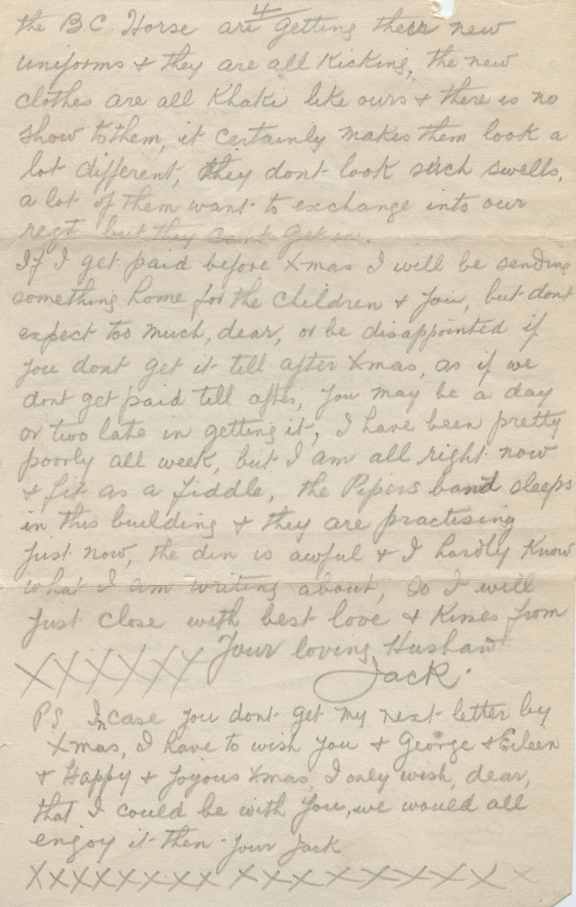 4
the B.C. Horse are getting their new
uniforms & they are all Kicking, the new
clothes are all Khaki like ours & there is no
show to them, it certainly makes them look a
lot different, they dont look such swells,
a lot of them want to exchange into our
regt but they cant get in.
If I get paid before Xmas I will be sending
something home for the children & you, but dont
expect too much, dear, or be disappointed if
you dont get it till after Xmas, as if we
dont get paid till after, you may be a day
or two late in getting it, I have been pretty
poorly all week, but I am all right now
& fit as a fiddle, the Pipers band sleeps
in this building & they are practising
just now, the din is awful & I hardly Know
what I am writing about, so I will
just close with best love & Kisses from
Your loving Husband
XXXXXX Jack.
P.S. In case you dont get my next letter by
Xmas, I have to wish you & George & Eileen
& Happy & Joyous Xmas I only wish, dear,
that I could be with you, we would all
enjoy it then your Jack
XXXXXXXX XXXXXXXXXXX